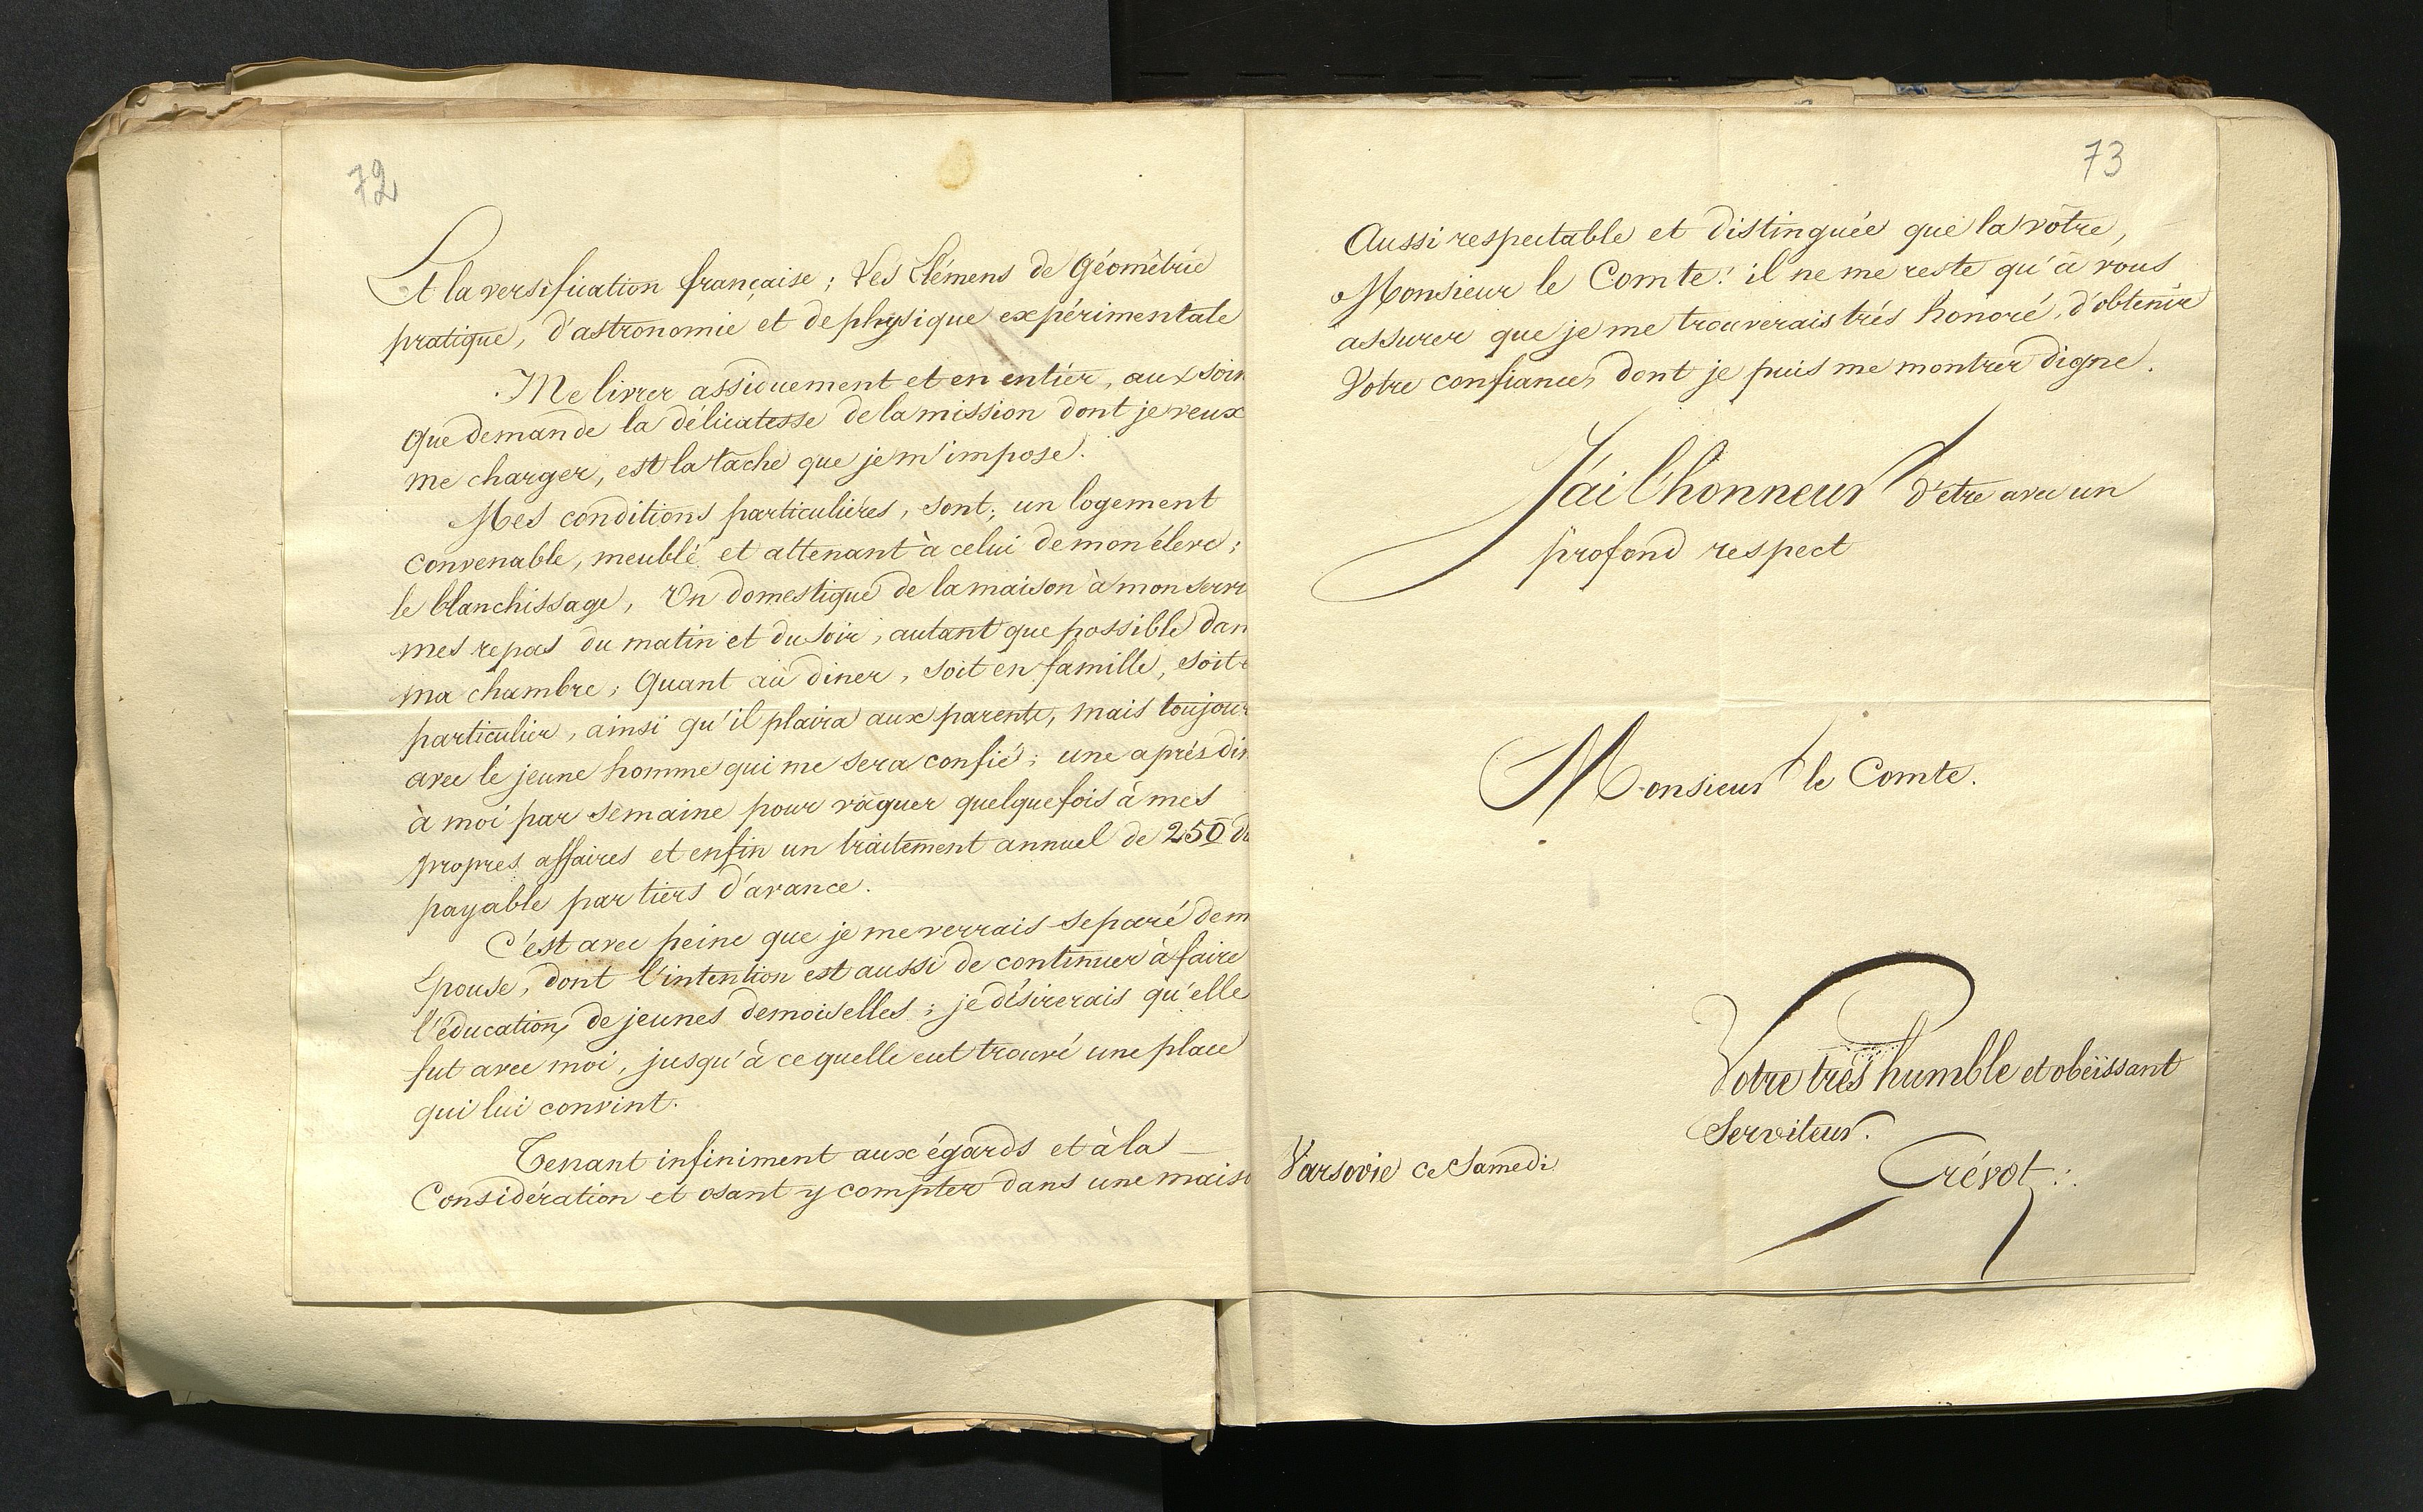 72
Et la versification française; Les Elémens de Géométrie
pratique, d'astronomie et de physique expérimentale
Me livrer assiduement et en entier, aux soin
que demande la délicatesse de la mission dont je veux
me charger, est la tâche que je m'impose.
Mes conditions particuliéres, sont; un logement
convenable, meublé et attenant à celui de mon élève;
le blanchissage, Un domestique de la maison à mon servi
mes repas du matin et du soir, autant que possible dan
ma chambre; Quant au diner, soit en famille, soit
particulier, ainsi qu'il plaira aux parents, mais toujour
avec le jeune homme qui me sera confié; une aprés din
à moi par semaine pour vâguer quelquefois à mes
propres affaires et enfin un traitement annuel de 250 du
payable par tiers d'avance.
C'est avec peine que je me verrais separé de m
Epouse, dont l'intention est aussi de continuer à faire
l'éducation de jeunes demoiselles; je désirerais qu'elle
fut avec moi, jusqu'à ce quelle eut trouvé une place
qui lui convint.
Tenant infiniment aux égards et à la
Considération et osant y compter dans une maiso
73
Aussi respectable et distinguée que la vôtre,
Monsieur le Comte! il ne me reste qu'à vous
assurer que je me trouverais trés honoré, d'obtenir
Votre confiance, dont je puis me montrer digne.
J'ai l'honneur d'etre avec un
profond respect
Monsieur le Comte.
Votre très humble et obéissant
Serviteur.
Varsovie ce Samedi
Crévot